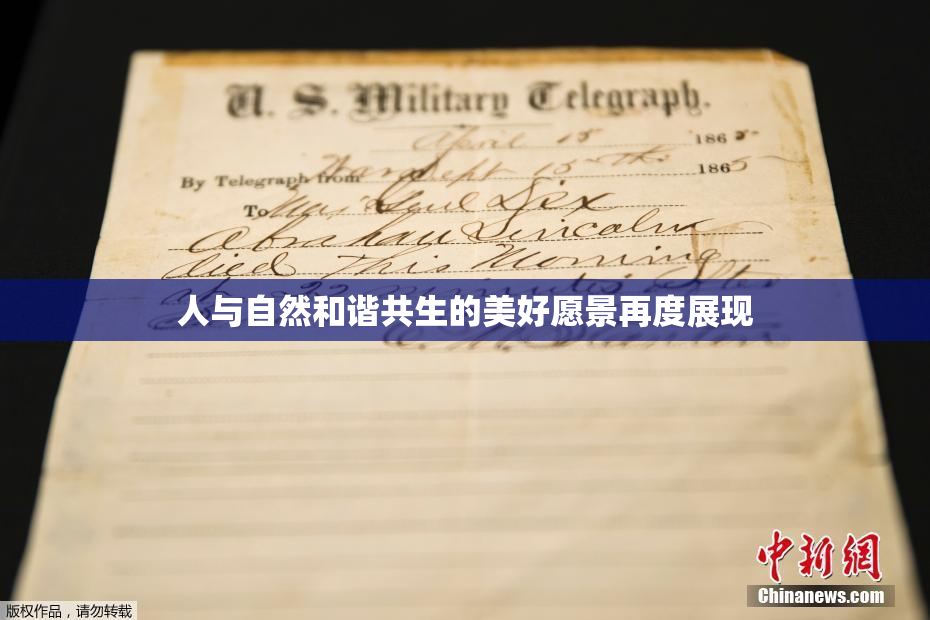 U. S. Military Telegraph.
April 15 1865
By Telegraph from War Dept 15th 1865
To Maj Genl Dix
Abraham Lincoln
died This Morning
22 minutes after
人与自然和谐共生的美好愿景再度展现
E. M. Stanton
中新網
Chinanews.com
版权作品，请勿转载